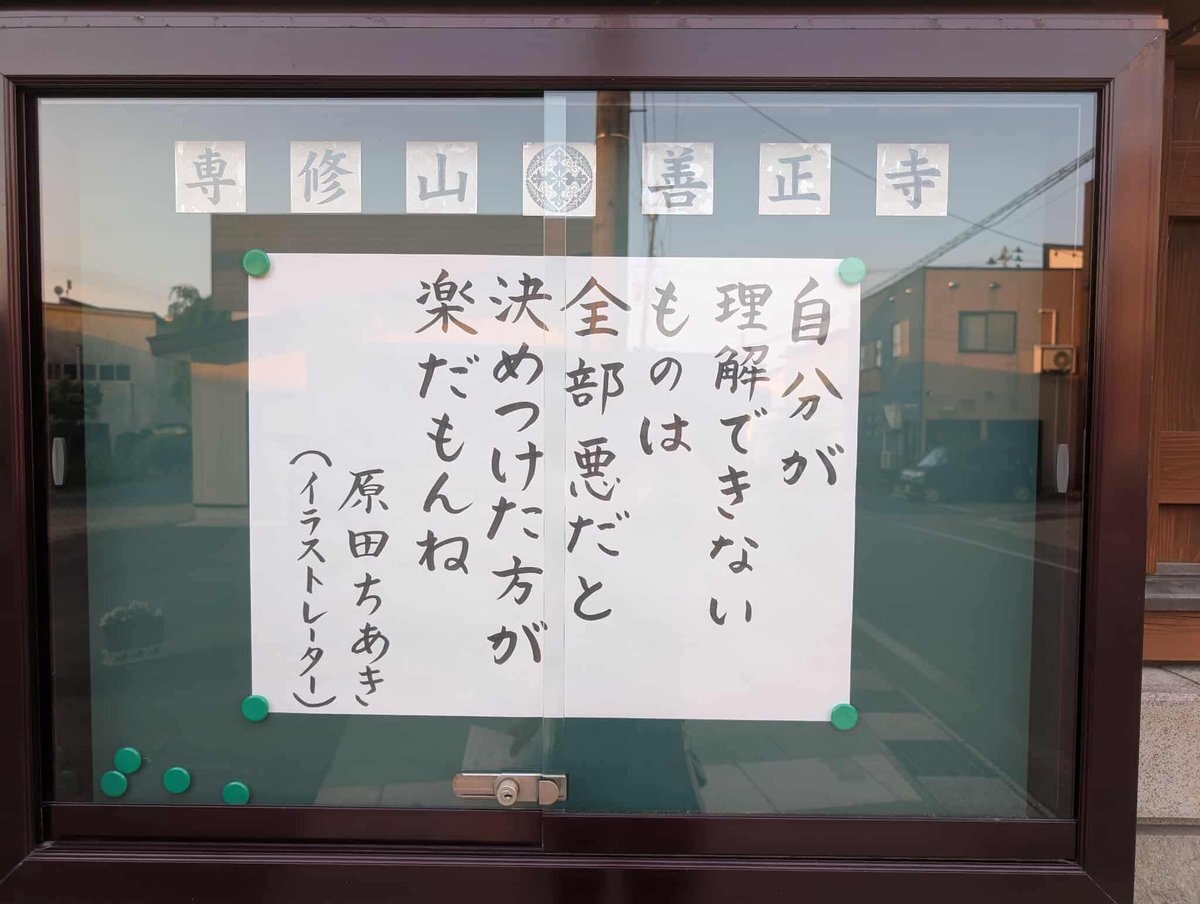 専修山 善正寺
自分が
理解できない
ものは
全部悪だと
決めつけた方が
楽だもんね
原田ちあき
（イラストレーター）